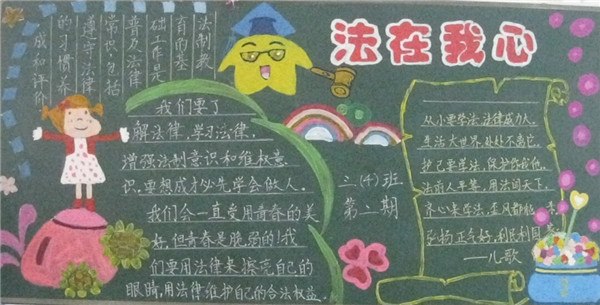 法制教
育的基
础工作是
普及法律
常识,包括
遵守法律
的习惯养
成和评价
法在我心
我们要了
解法律,学习法律,
增强法制意识和维权意
识,要想成才必先学会做人。
我们会一直受用青春的美
好,但青春是脆弱的!我
们要用法律来擦亮自己的
眼睛,用法律维护自己的合法权益.
三(4)班
第二期
从小要学法,法律威力大。
生活大世界,处处不离它。
护己要学法,保护你我他。
法前人平等,用法闯天下。
齐心来学法,歪风都能
弘扬正气好,利民利国
——儿歌